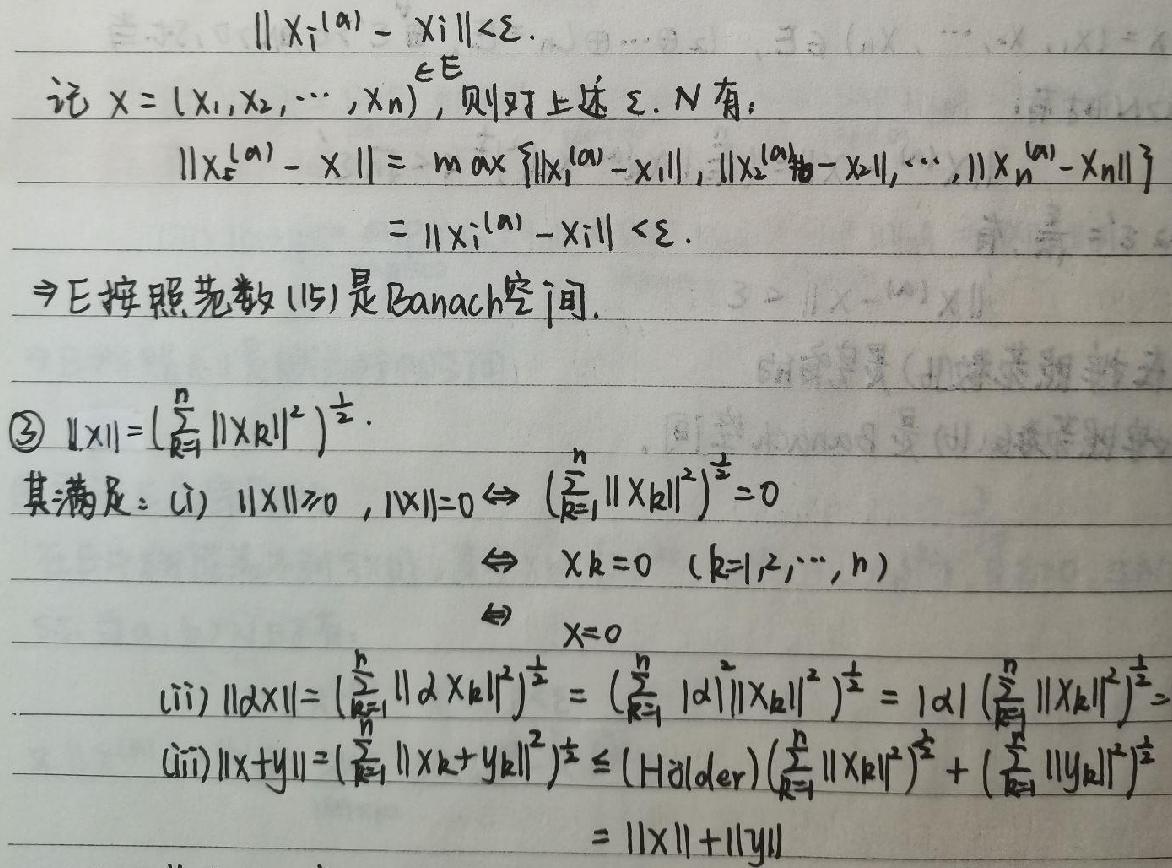 ||xᵢ⁽ᵃ⁾ - xᵢ|| < ε.
记 x = (x₁, x₂, ⋯, xₙ) ∈E, 则对上述 ε. N 有:
||x⁽ᵃ⁾ - x|| = max {||x₁⁽ᵃ⁾ - x₁||, ||x₂⁽ᵃ⁾ - x₂||, ⋯, ||xₙ⁽ᵃ⁾ - xₙ||}
= ||xᵢ⁽ᵃ⁾ - xᵢ|| < ε.
⇒ E按照范数(15)是Banach空间.
③ ||x|| = (∑ₖ₌₁ⁿ ||xₖ||²)^{1/2}.
其满足: (i) ||x||≥0, ||x||=0 ⇔ (∑ₖ₌₁ⁿ ||xₖ||²)^{1/2} = 0
⇔ xₖ=0 (k=1,2,⋯,n)
⇔ x=0
(ii) ||αx|| = (∑ₖ₌₁ⁿ ||αxₖ||²)^{1/2} = (∑ₖ₌₁ⁿ |α|²||xₖ||²)^{1/2} = |α| (∑ₖ₌₁ⁿ ||xₖ||²)^{1/2} =
(iii) ||x+y|| = (∑ₖ₌₁ⁿ ||xₖ+yₖ||²)^{1/2} ≤ (Hölder) (∑ₖ₌₁ⁿ ||xₖ||²)^{1/2} + (∑ₖ₌₁ⁿ ||yₖ||²)^{1/2}
= ||x|| + ||y||